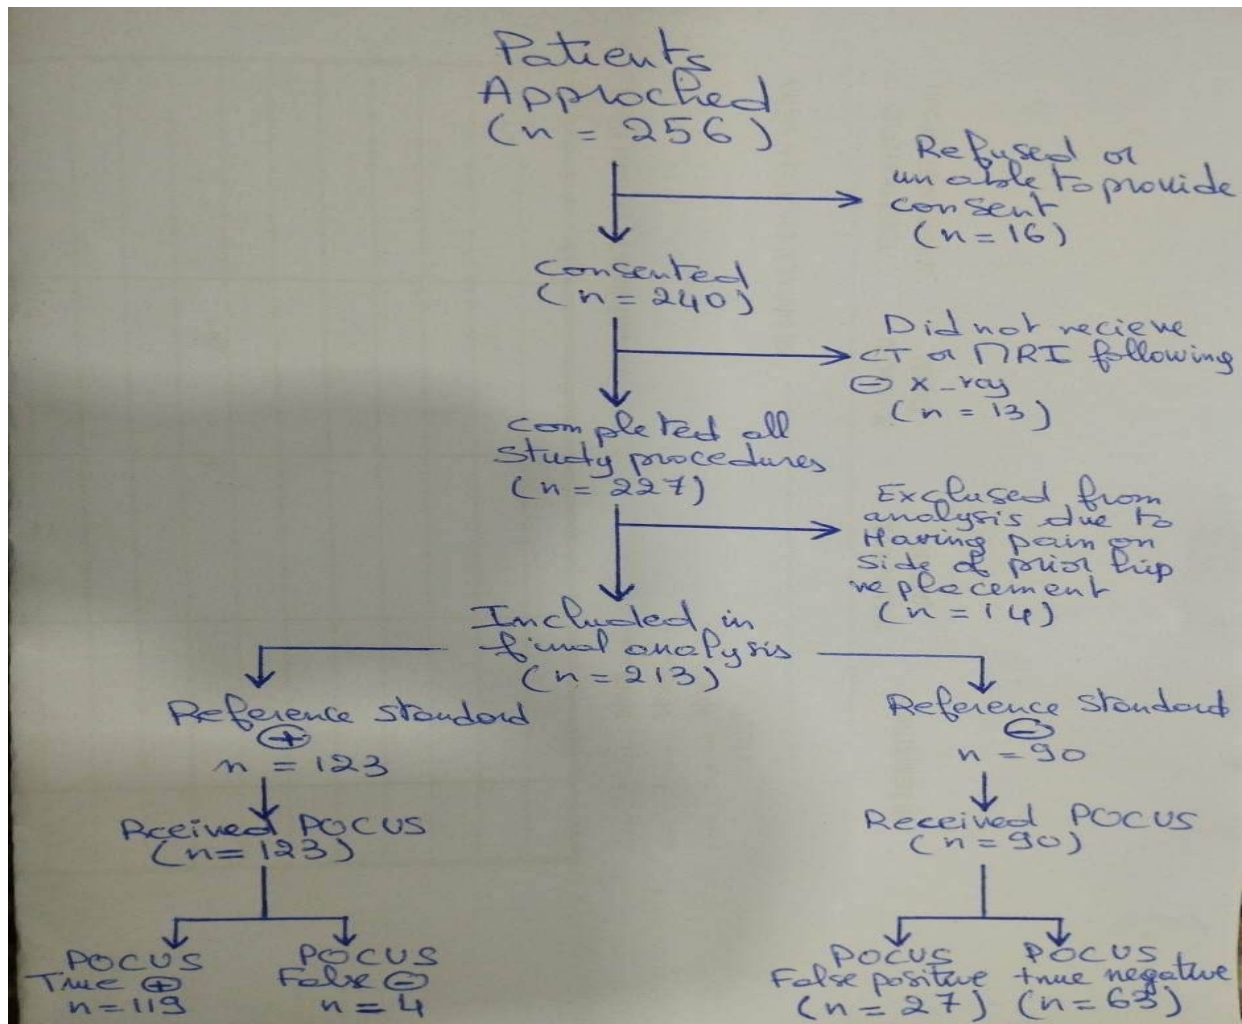 Patients
Approched
(n = 256)
Refused or
unable to provide
consent
(n = 16)
Consented
(n = 240)
Did not recieve
CT or MRI following
⊖ x-ray
(n = 13)
completed all
study procedures
(n = 227)
Exclused from
analysis due to
Having pain on
side of prior hip
replacement
(n = 14)
Included in
final analysis
(n = 213)
Reference standard
⊕
n = 123
Rceived POCUS
(n = 123)
POCUS
True ⊕
n = 119
POCUS
False ⊖
n = 4
Reference standard
⊖
n = 90
Received POCUS
(n = 90)
POCUS
False positive
(n = 27)
POCUS
true negative
(n = 63)